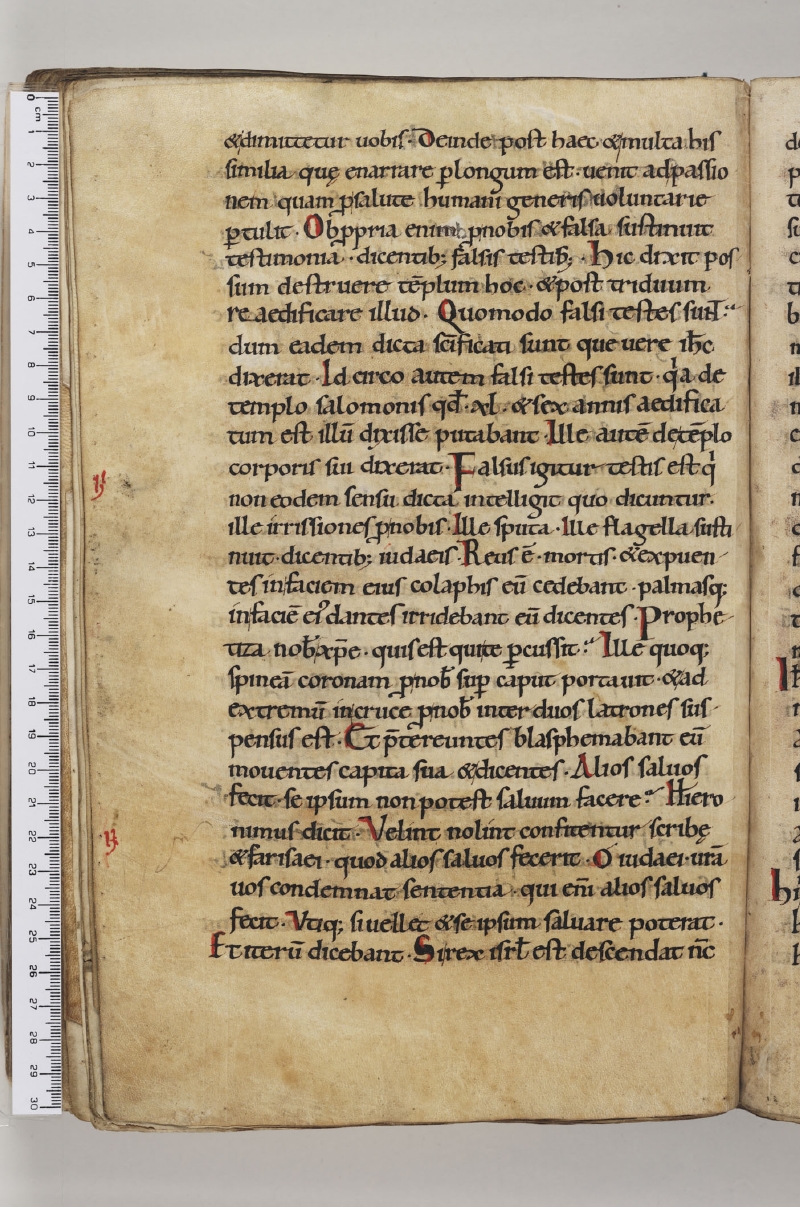 &dimittetur uobis. Deinde post haec &multa his
similia quę enarrare ꝑlongum est. uenit adpassio
nem quam ꝓsalute humani generis uoluntarie
ꝑtulit. Obꝓpria enim ꝓnobis &falsa sustinuit
testimonia. dicentib; falsis testib;. Hic dixit pos
sum destruere tēplum hoc. &post triduum
re aedificare illud. Quomodo falsi testes sunt
dum eadem dicta scīficati sunt que uere ihc̄
dixerat. Id circo autem falsi testes sunt. qa de
templo salomonis qđ .xl. &sex annis aedifica
tum est illū dixisse putabant. Ille autē detēplo
corporis sui dixerat. Falsus igitur testis est qi
non eodem sensu dicta intelligit quo dicuntur.
ille irrissiones ꝓnobis. Ille sputa. Ille flagella susti
nuit. dicentib; iudaeis. Reus ē mortis. &expuen
tes infaciem eius colaphis eū cedebant. palmasq;
infaciē ei dantes irridebant eū dicentes. Prophe
tiza nob̄ xp̄e. quis est qui te ꝑcussit. Ille quoq;
spineā coronam ꝓnob̄ suꝑ caput portauit. &ad
extremū incruce ꝓnob̄ inter duos latrones sus
pensus est. Et p̄tereuntes blasphemabant eū
mouentes capita sua &dicentes. Alios saluos
fecit. se ipsum non potest saluum facere. Hiero
nimus dicit. Velint nolint confitentur scribę
&farisaei. quod alios saluos fecerit. O iudaei. urā
uos condemnat sententia. qui eni alios saluos
fecit. Vtiq; si uellet &se ipsum saluare poterat.
Et iterū dicebant. Si rex isrl̄ est descendat nc̄